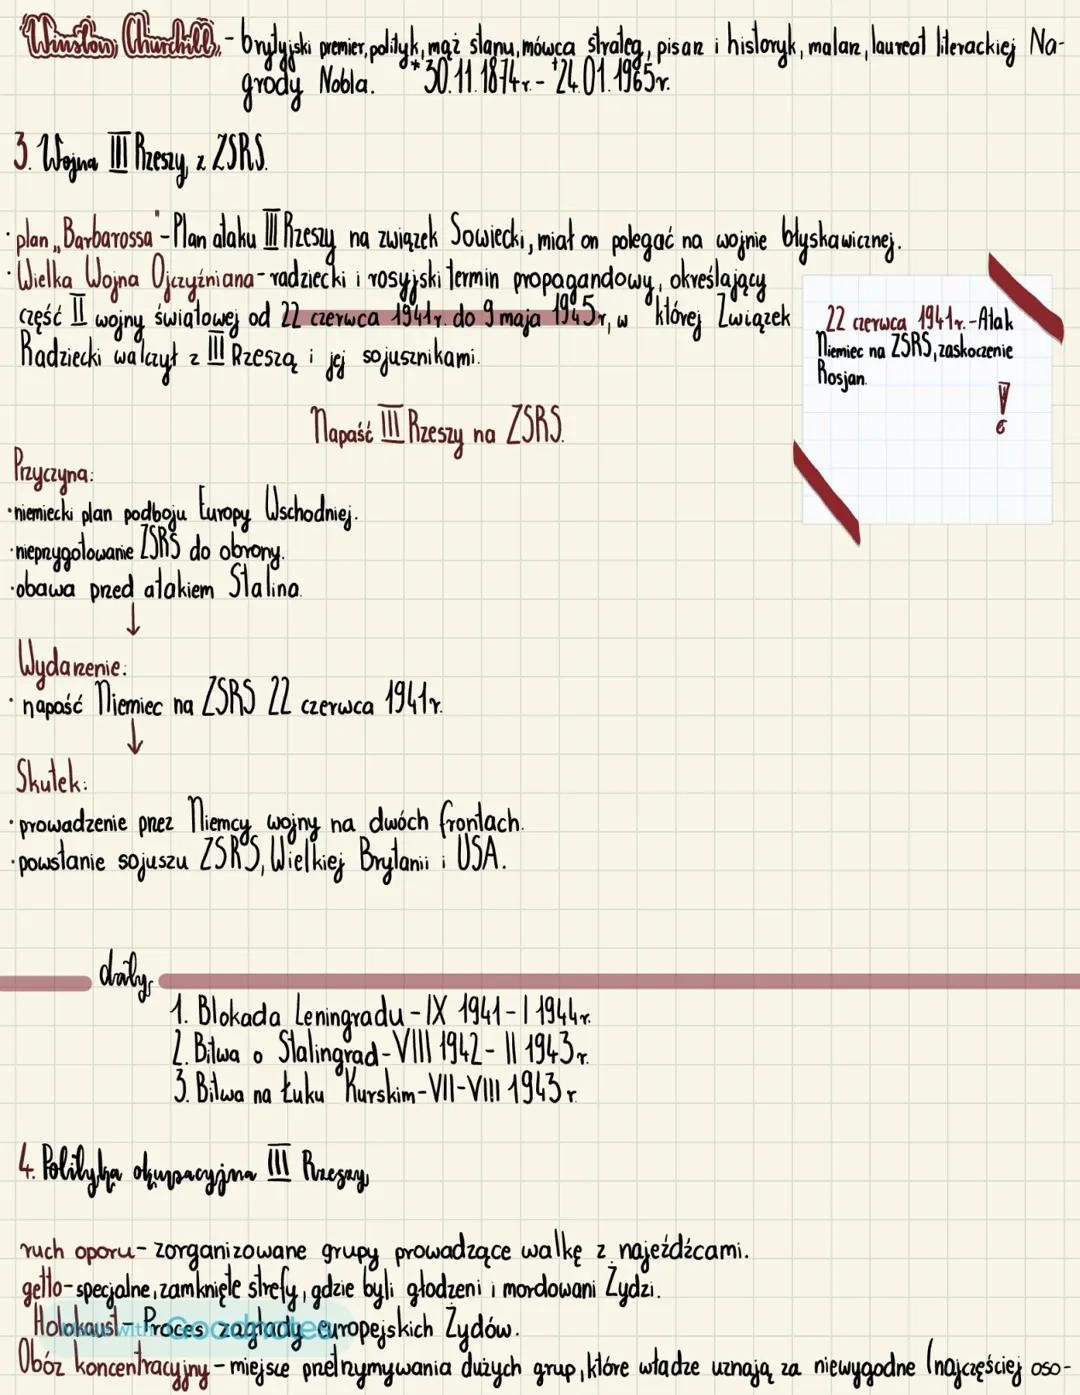 Winston Churchill - brytyjski premier, polityk, mąż stanu, mówca strateg, pisarz i historyk, malarz, laureat literackiej Na-
grody Nobla. *30.11.1874r. - †24.01.1965r.
3. Wojna III Rzeszy z ZSRS.
· plan „Barbarossa" - Plan ataku III Rzeszy na związek Sowiecki, miał on polegać na wojnie błyskawicznej.
· Wielka Wojna Ojczyźniana - radziecki i rosyjski termin propagandowy, określający
część II wojny światowej od 22 czerwca 1941r. do 9 maja 1945r, w której Związek
Radziecki walczył z III Rzeszą i jej sojusznikami.
22 czerwca 1941r. - Atak
Niemiec na ZSRS, zaskoczenie
Rosjan.
!
Napaść III Rzeszy na ZSRS.
Przyczyna:
· niemiecki plan podboju Europy Wschodniej.
· nieprzygotowanie ZSRS do obrony.
· obawa przed atakiem Stalina.
↓
Wydarzenie:
· napaść Niemiec na ZSRS 22 czerwca 1941r.
↓
Skutek:
· prowadzenie przez Niemcy wojny na dwóch frontach.
· powstanie sojuszu ZSRS, Wielkiej Brytanii i USA.
daty
1. Blokada Leningradu - IX 1941 - I 1944r.
2. Bitwa o Stalingrad - VIII 1942 - II 1943r.
3. Bitwa na Łuku Kurskim - VII - VIII 1943r.
4. Polityka okupacyjna III Rzeszy
ruch oporu - zorganizowane grupy prowadzące walkę z najeźdźcami.
getto - specjalne, zamknięte strefy, gdzie byli głodzeni i mordowani Żydzi.
Holokaust - Proces zagłady europejskich Żydów.
Obóz koncentracyjny - miejsce przetrzymywania dużych grup, które władze uznają za niewygodne (najczęściej oso-